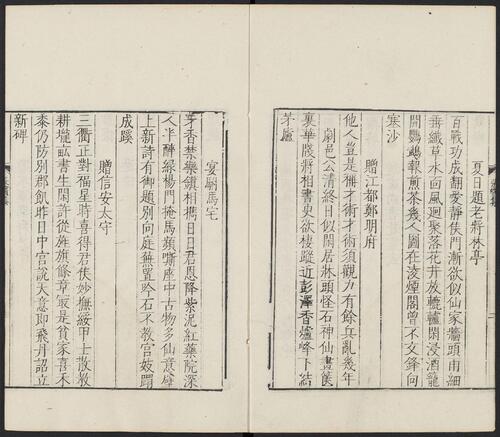 夏日題老將林亭
百戰功成翻愛靜侯門漸欲似仙家牆頭雨細
垂纖草水面風迴聚落花井放轆轤閑浸酒籠
開鸚鵡報煎茶幾人圖在凌煙閣曾不交鋒向
塞沙
贈江都鄭明府
他人豈是稱才術才術須觀力有餘兵亂幾年
臨劇邑公清終日似閒居牀頭怪石神仙畫篋
裏華牋將相書更欲棲蹤近彭澤香爐峰下結
茅廬
宴駙馬宅
牙香禁樂鎮相攜日日君恩降紫泥紅藥院深
人半醉綠楊門掩馬頻嘶座中古物多仙意壁
上新詩有御題別向庭蕪置吟石不教宮妓蹋
成蹊
贈信安太守
三衢正對福星時喜得君侯妙撫綏甲士散教
耕壠畝書生閑許從旌旗條章最是貧家喜禾
黍仍防別郡飢昨日中官說天意即飛丹詔立
新碑